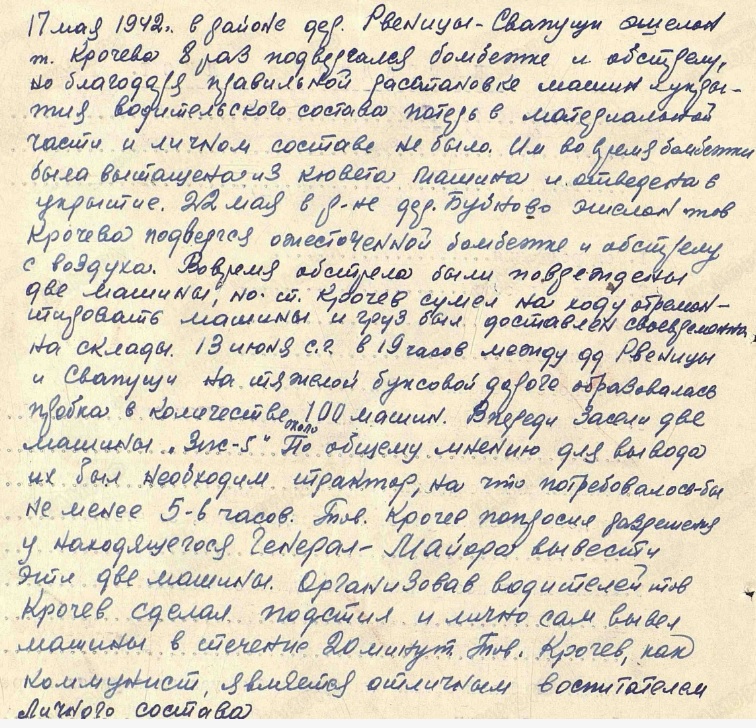 17 мая 1942г. в районе дер. Рвеницы-Свапущи эшелон
т. Крочева 8 раз подвергался бомбежке и обстрелу,
но благодаря правильной расстановке машин
водительского состава потерь в материальной
части и личном составе не было. Им во время бомбежки
была вытащена из кювета машина и отведена в
укрытие. 22 мая в р-не дер. Буйново эшелон тов
Крочева подвергся ожесточенной бомбежке и обстрелу
с воздуха. Вовремя обстрела были повреждены
две машины, но т. Крочев сумел на ходу отремон-
тировать машины и груз был доставлен своевременно
на склады. 13 июня с.г. в 19 часов между дд Рвеницы
и Свапущи на тяжелой буксовой дороге образовалась
пробка в количестве около 100 машин. Впереди засели две
машины „Зис-5“ По общему мнению для вывода
их был необходим трактор, на что потребовалось-бы
не менее 5-6 часов. Тов. Крочев попросил разрешения
у находящегося Генерал-Майора вывести
эти две машины. Организовав водителей тов
Крочев сделал подстил и лично сам вывел
машины в течение 20 минут. Тов. Крочев, как
коммунист, является отличным воспитателем
личного состава